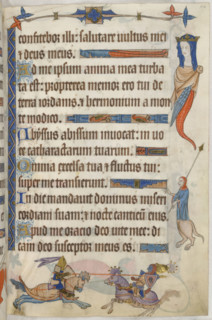 confitebor illi: salutare uultus mei
⁊ deus meus.
Ad me ipsum anima mea turba
ta est: propterea memor ero tui de
terra iordanis ⁊ hermonium a mon
te modico.
Abyssus abyssum inuocat: in uo
ce catharactarum tuarum.
Omnia excelsa tua ⁊ fluctus tui:
super me transierunt.
In die mandauit dominus miseri
cordiam suam: ⁊ nocte canticum eius.
Apud me oracio deo uite mee: di
cam deo susceptor meus es.